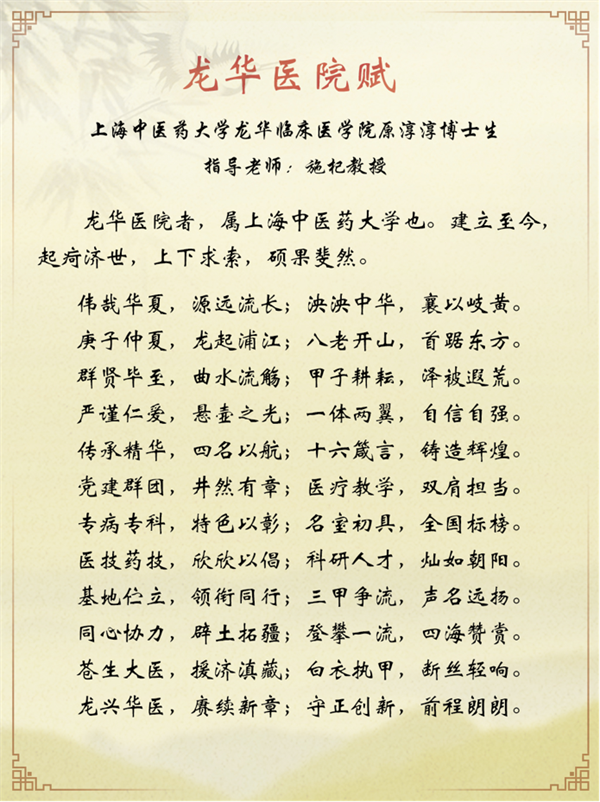 龙华医院赋
上海中医药大学龙华临床医学院原淳淳博士生
指导老师：施杞教授
龙华医院者，属上海中医药大学也。建立至今，
起疴济世，上下求索，硕果斐然。
伟哉华夏，源远流长；泱泱中华，襄以岐黄。
庚子仲夏，龙起浦江；八老开山，首踞东方。
群贤毕至，曲水流觞；甲子耕耘，泽被遐荒。
严谨仁爱，悬壶之光；一体两翼，自信自强。
传承精华，四名以航；十六箴言，铸造辉煌。
党建群团，井然有章；医疗教学，双肩担当。
专病专科，特色以彰；名室初具，全国标榜。
医技药技，欣欣以倡；科研人才，灿如朝阳。
基地伫立，领衔同行；三甲争流，声名远扬。
同心协力，辟土拓疆；登攀一流，四海赞赏。
苍生大医，援济滇藏；白衣执甲，断丝轻响。
龙兴华医，赓续新章；守正创新，前程朗朗。